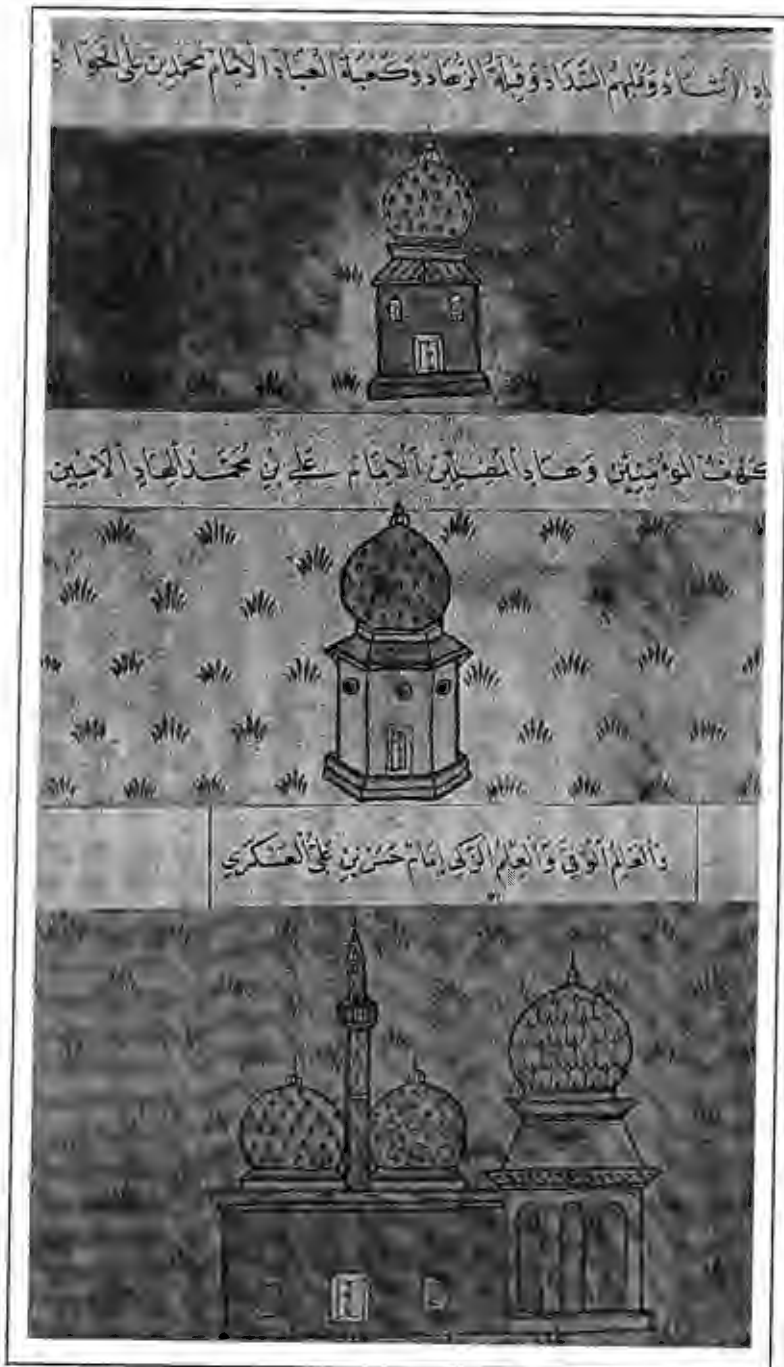 وَمُلْهِمُ السَّدَادْ وَقِبْلَةُ الزُّهَادْ وَكَعْبَةُ الْعِبَادْ الْاِمَامْ مُحَمَّدْ بِنْ عَلِى الْجَوَادْ
كَهْفُ الْمُوءْمِنِيْنْ وَهَادِ الْمُضِلِّيْنْ اَلْاِمَامْ عَلِى بِنِ مُحَمَّدْ اَلْهَادِ اَلْاَمِيْن
وَالْعَالِمُ الْوَفِىّ وَالْعِلْمُ الزَّكِى اِمَامْ حَسَنْ بِنِ عَلِىُّ الْعَسْكَرِي